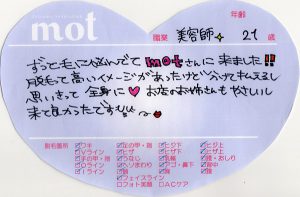 mot
年齢
職業 美容師 27 歳
ずっと毛になやんでて motさんに来ました!!
脱毛って高いイメージがあったけど分けてやれるし
思いきって 全身に♥ お店のお姉さんもやさしい
来て良かったですぅぅぅ〜
脱毛箇所
ワキ
足の甲・指
ヒザ下
ヒザ上
Vライン
ヒザ
ヒジ下
ヒジ上
手の甲・指
うなじ
乳輪
腰・おしり
Oライン
ヘソまわり
アゴ・鼻下
背中
Iライン
腹
胸
腰
フェイスライン
フォト美顔
ACケア